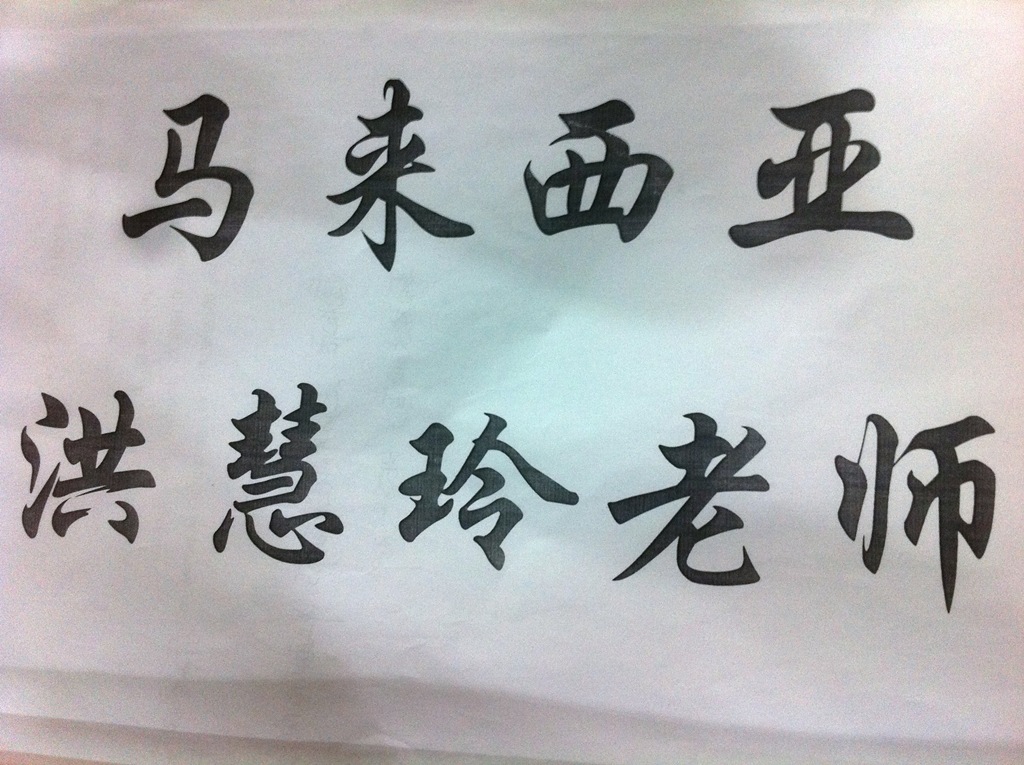 马来西亚
洪慧玲老师